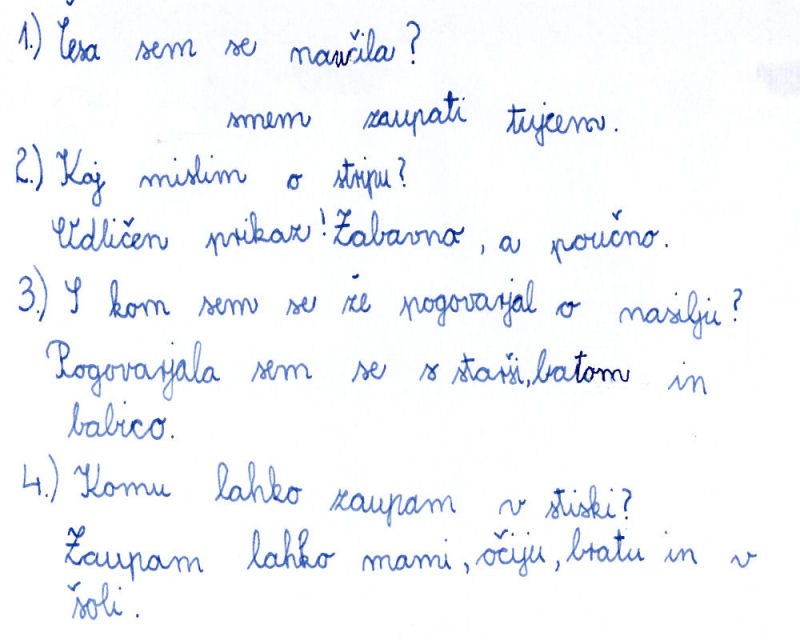 1.) Česa sem se naučila?
smem zaupati tujcem.
2.) Kaj mislim o stripu?
Odličen prikaz! Zabavno, a poučno.
3.) S kom sem se že pogovarjal o nasilju?
Pogovarjala sem se s starši, batom in
babico.
4.) Komu lahko zaupam v stiski?
Zaupam lahko mami, očiju, bratu in v
šoli.